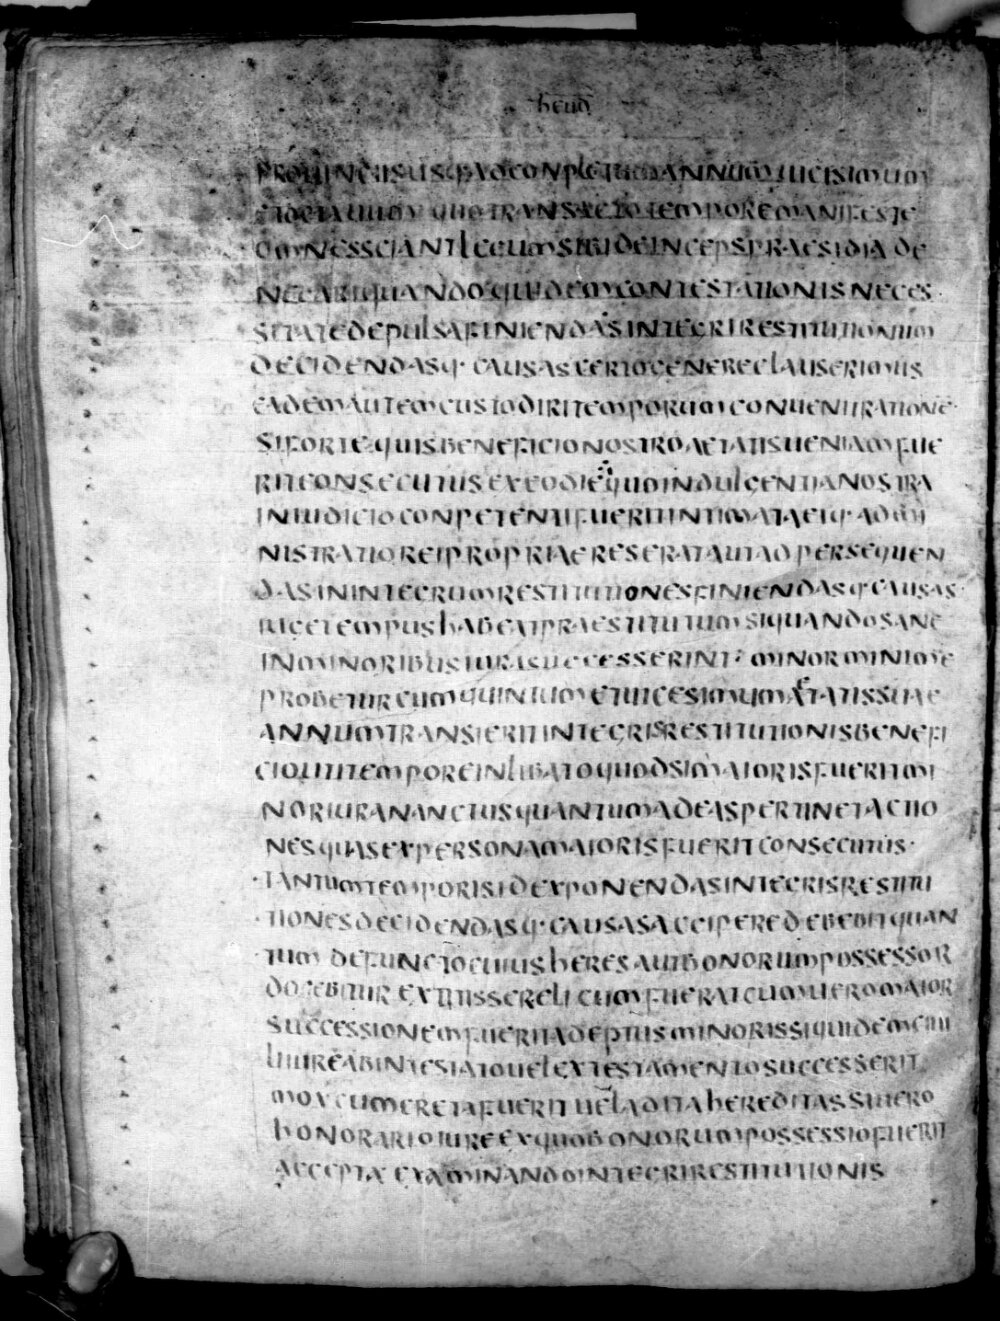 PROUINCIIS USQ· AD CONPLETUM ANNUM UICESIMUM
ET OCTAUUM QUO TRANSACTO TEMPORE MANIFESTE
OMNES SCIANT LECUM SIBI DEINCEPS PRAESIDIA DE
NEGARI QUANDO QUIDEM CONTESTATIONIS NECES
SITATE DEPULSA FINIENDAS INTEGRI RESTITUTIONUM
DECIDENDASQ· CAUSAS CERTO GENERE CLAUSERIMUS
EADEM AUTEM CUSTODIRI TEMPORUM CONUENIT RATIONE·
SI FORTE QUIS BENEFICIO NOSTRO AETATIS UENIAM FUE
RIT CONSECUTUS EX EO DIE QUO INDULGENTIA NOSTRA
IN IUDICIO CONPETENTI FUERIT INTIMATA EIQ· ADMI
NISTRATIO REI PROPRIAE RESERATA UT AD PERSEQUEN
DAS IN INTEGRUM RESTITUTIONES FINIENDASQ· CAUSAS
IUGE TEMPUS HABEAT PRAESTITUTUM SI QUANDO SANE
IN MINORIBUS IURA SUCCESSERINT· MINOR MINIME
PROBETUR CUM QUINTUM ET UICESIMUM AETATIS SUAE
ANNUM TRANSIERIT INTEGRIS RESTITUTIONIS BENEFI
CIO UTI TEMPORE INLIBATO QUOD SI MAIORIS FUERIT MI
NOR IURA NANCTUS QUANTUM AD EAS PERTINET ACTIO
NES QUAS EX PERSONA MAIORIS FUERIT CONSECUTUS·
TANTUM TEMPORIS ID EXPONENDAS INTEGRIS RESTITU
TIONES DECIDENDASQ· CAUSAS ACCIPERE DEBEBIT QUAN
TUM DEFUNCTO CUIUS HERES AUT BONORUM POSSESSOR
DOCEBITUR EXTITISSE RELICUM FUERAT CUM UERO MAIOR
SUCCESSIONEM FUERIT ADEPTUS MINORIS SI QUIDEM CIUI
LI IURE AB INTESTATO UEL EX TESTAMENTO SUCCESSERIT
MOX CUM CRETA FUERIT UEL ADITA HEREDITAS SI UERO
HONORARIO IURE EX QUO BONORUM POSSESSIO FUERIT
ACCEPTA EXAMINANDO INTEGRI RESTITUTIONIS